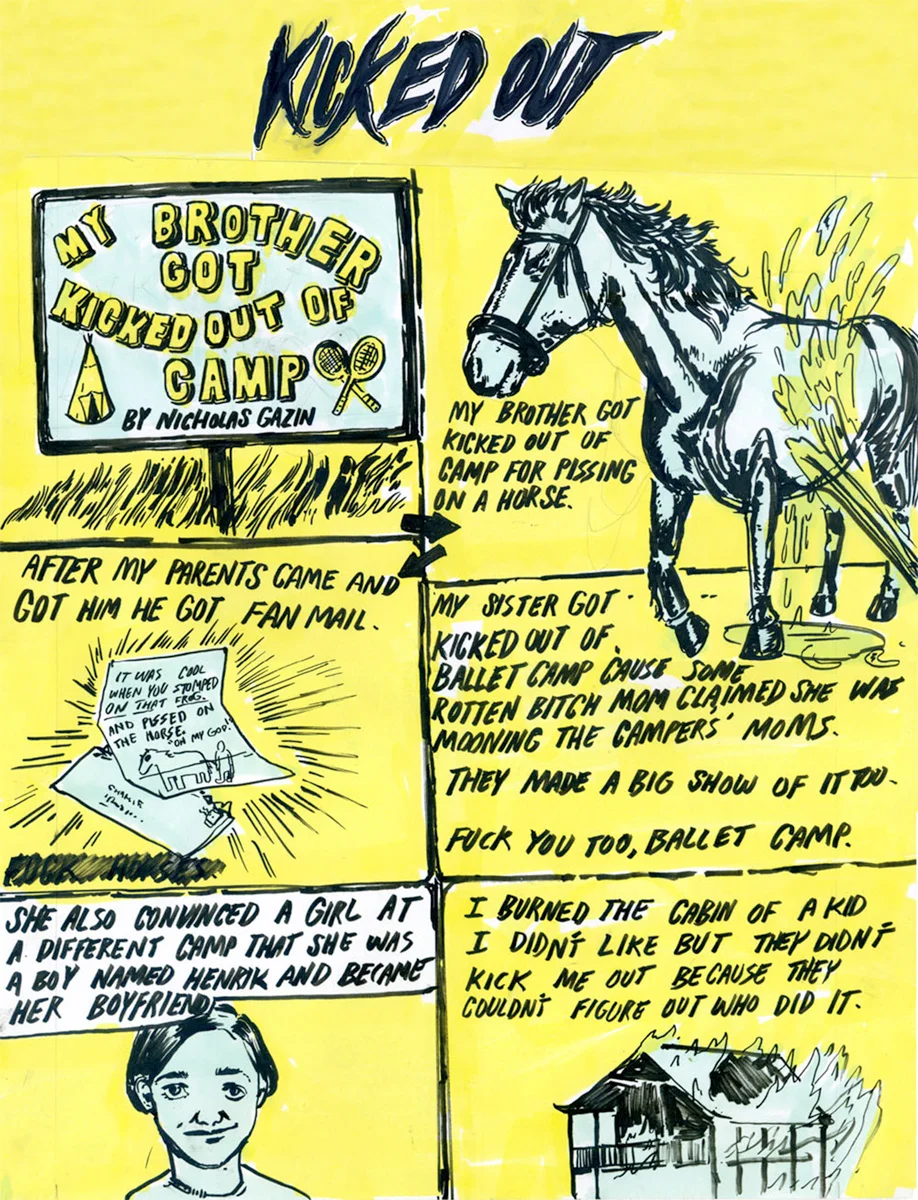 KICKED OUT
MY BROTHER
GOT
KICKED OUT OF
CAMP
BY NICHOLAS GAZIN
MY BROTHER GOT
KICKED OUT OF
CAMP FOR PISSING
ON A HORSE.
AFTER MY PARENTS CAME AND
GOT HIM HE GOT FAN MAIL.
IT WAS COOL
WHEN YOU STOMPED
ON THAT FROG.
AND PISSED ON
THE HORSE.
"OH MY GOD!"
MY SISTER GOT
KICKED OUT OF
BALLET CAMP 'CAUSE SOME
ROTTEN BITCH MOM CLAIMED SHE WAS
MOONING THE CAMPERS' MOMS.
THEY MADE A BIG SHOW OF IT TOO.
FUCK YOU TOO, BALLET CAMP.
SHE ALSO CONVINCED A GIRL AT
A DIFFERENT CAMP THAT SHE WAS
A BOY NAMED HENRIK AND BECAME
HER BOYFRIEND.
I BURNED THE CABIN OF A KID
I DIDN'T LIKE BUT THEY DIDN'T
KICK ME OUT BECAUSE THEY
COULDN'T FIGURE OUT WHO DID IT.